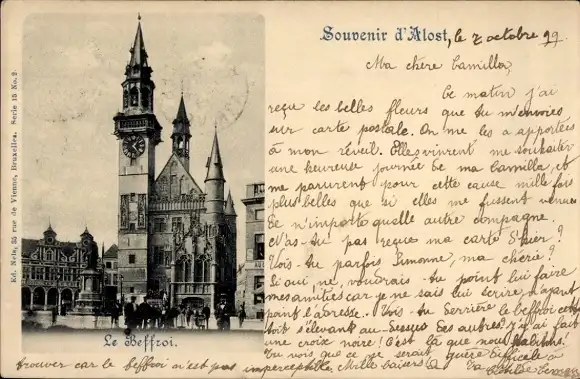 Souvenir d'Alost, le 7 octobre 99
Ma chère Camilla,
Ce matin j'ai
reçue les belles fleurs que tu m'envoies
sur carte postale. On me les a apportées
à mon réveil. Elles vinrent me souhaiter
une heureuse journée de ma Camilla, et
me parurent pour cette cause mille fois
plus belles que si elles me fussent venues
de n'importe quelle autre compagne.
N'as-tu pas reçue ma carte hier?
Vois-tu parfois Simonne, ma chérie?
Si oui, ne voudrais-tu point lui faire
mes amitiés car je ne sais lui écrire, n'ayant
point l'adresse. Vois-tu derrière le beffroi cette
toit s'élevant au-dessus des autres? J'y ai fait
une croix noire! C'est là que nous habitons!
Tu vois que ce ne serait guère difficile à
trouver car le beffroi n'est pas imperceptible. Mille baisers
Le Beffroi.
Ed. Nels, 35 rue de Vienne, Bruxelles. Serie 15 No. 2.